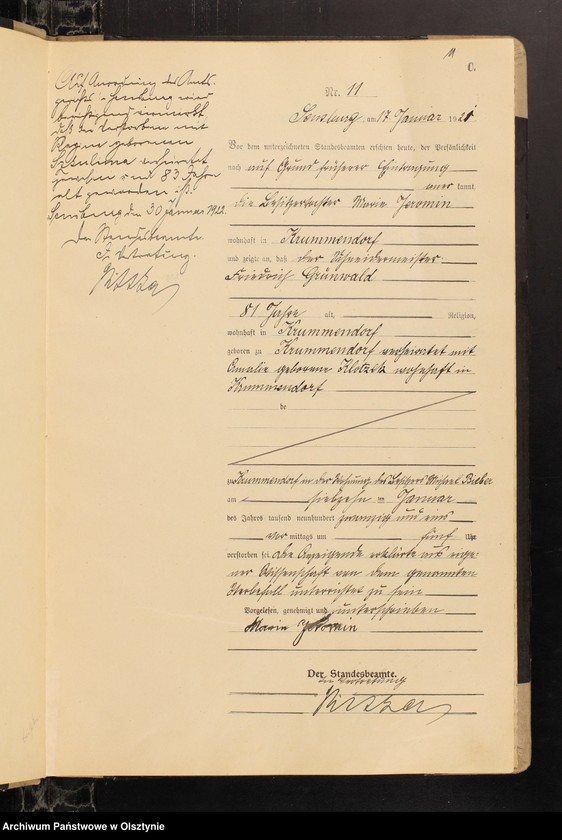 11
C.
Nr. 11
Sensburg, am 17 Januar 1921
Vor dem unterzeichneten Standesbeamten erschien heute, der Persönlichkeit
nach auf Grund früherer Eintragung
aner kannt,
die Besitzertochter Marie Jeromin
wohnhaft in Krummendorf
und zeigte an, daß der Schneidermeister
Friedrich Grünwald
81 Jahre alt, Religion,
wohnhaft in Krummendorf
geboren zu Krummendorf verheiratet mit
Amalie geborene wohnhaft in
Krummendorf
de
zu Krummendorf in der Wohnung des Besitzers Michael Bieber
am siebzehn ten Januar
des Jahres tausend neunhundert zwanzig und eins
vor mittags um fünf Uhr
verstorben sei. Die Anzeigende erklärte aus eige-
ner Wissenschaft von dem genannten
Sterbefall unterrichtet zu sein
Vorgelesen, genehmigt und unterschrieben
Marie Jeromin
Der Standesbeamte.
In Vertretung
Auf Anordnung des Amts-
gerichts Sensburg wird
berichtigend vermerkt,
daß der Verstorbene mit
Regine geborenen
verheiratet
gewesen und 83 Jahre
alt geworden ist.
Sensburg, den 30 Januar 1922
Der Standesbeamte
In Vertretung.
Archiwum Państwowe w Olsztynie